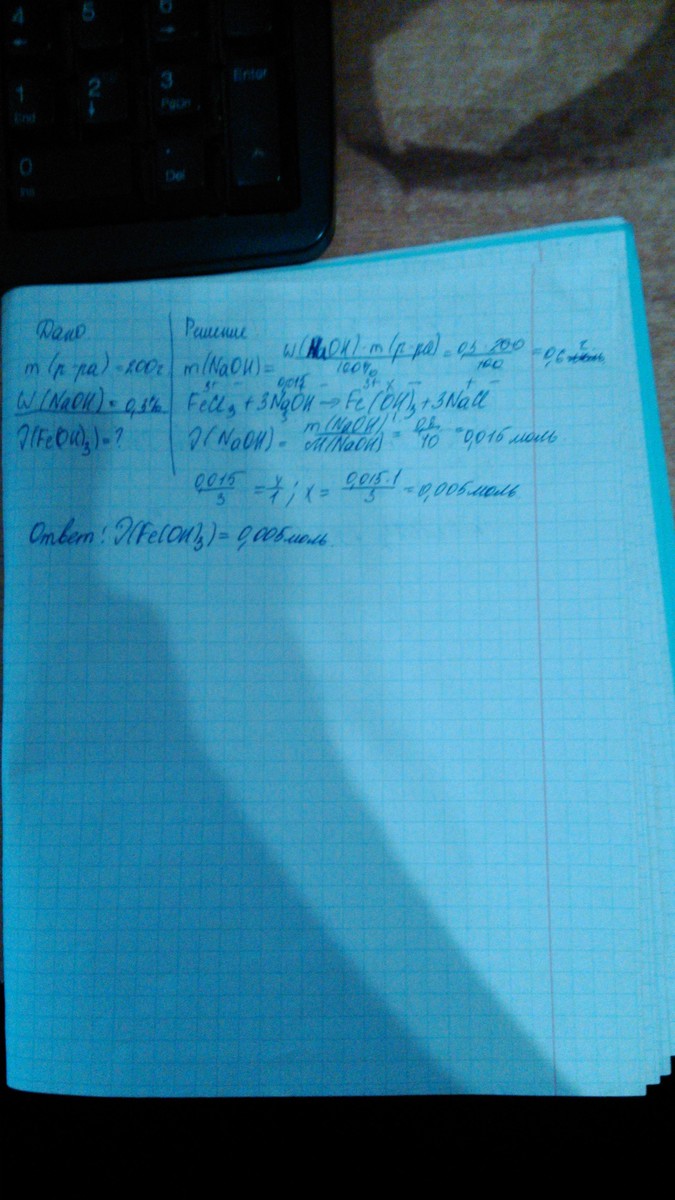 4
←
5
6
→
1
End
2
↓
3
PgDn
Enter
0
Ins
.
Del
Дано
m(р-ра)=200г
W(NaOH)=0,3%
ν(Fe(OH)₃)=?
Решение
m(NaOH)= W(NaOH)·m(р-ра)/100% = 0,3·200/100 = 0,6 г
3+ – 0,015 – 3+ x – + –
FeCl₃+3NaOH→Fe(OH)₃+3NaCl
3 1
ν(NaOH)= m(NaOH)/M(NaOH) = 0,6/40 = 0,015 моль
0,015/3 = x/1; x= 0,015·1/3 = 0,005 моль
Ответ: ν(Fe(OH)₃)= 0,005 моль.